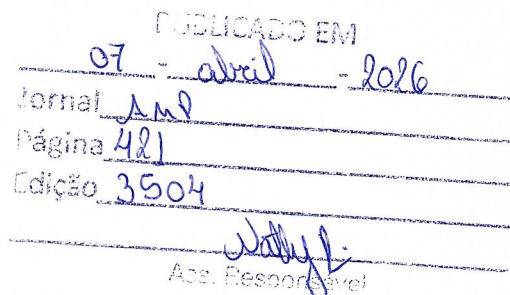 PUBLICADO EM
07 - abril - 2026
Jornal AMP
Página 421
Edição 3504
Nathy R.
Ass. Responsável